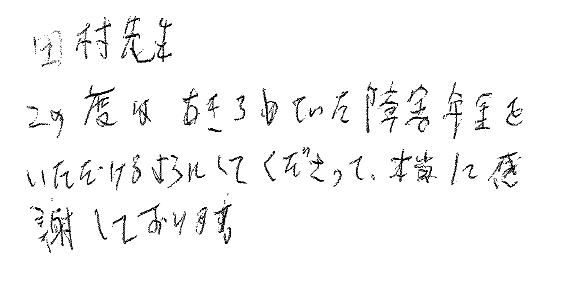 田村先生
この度は あきらめていた障害年金を
いただけるようにしてくださって、本当に感
謝しております